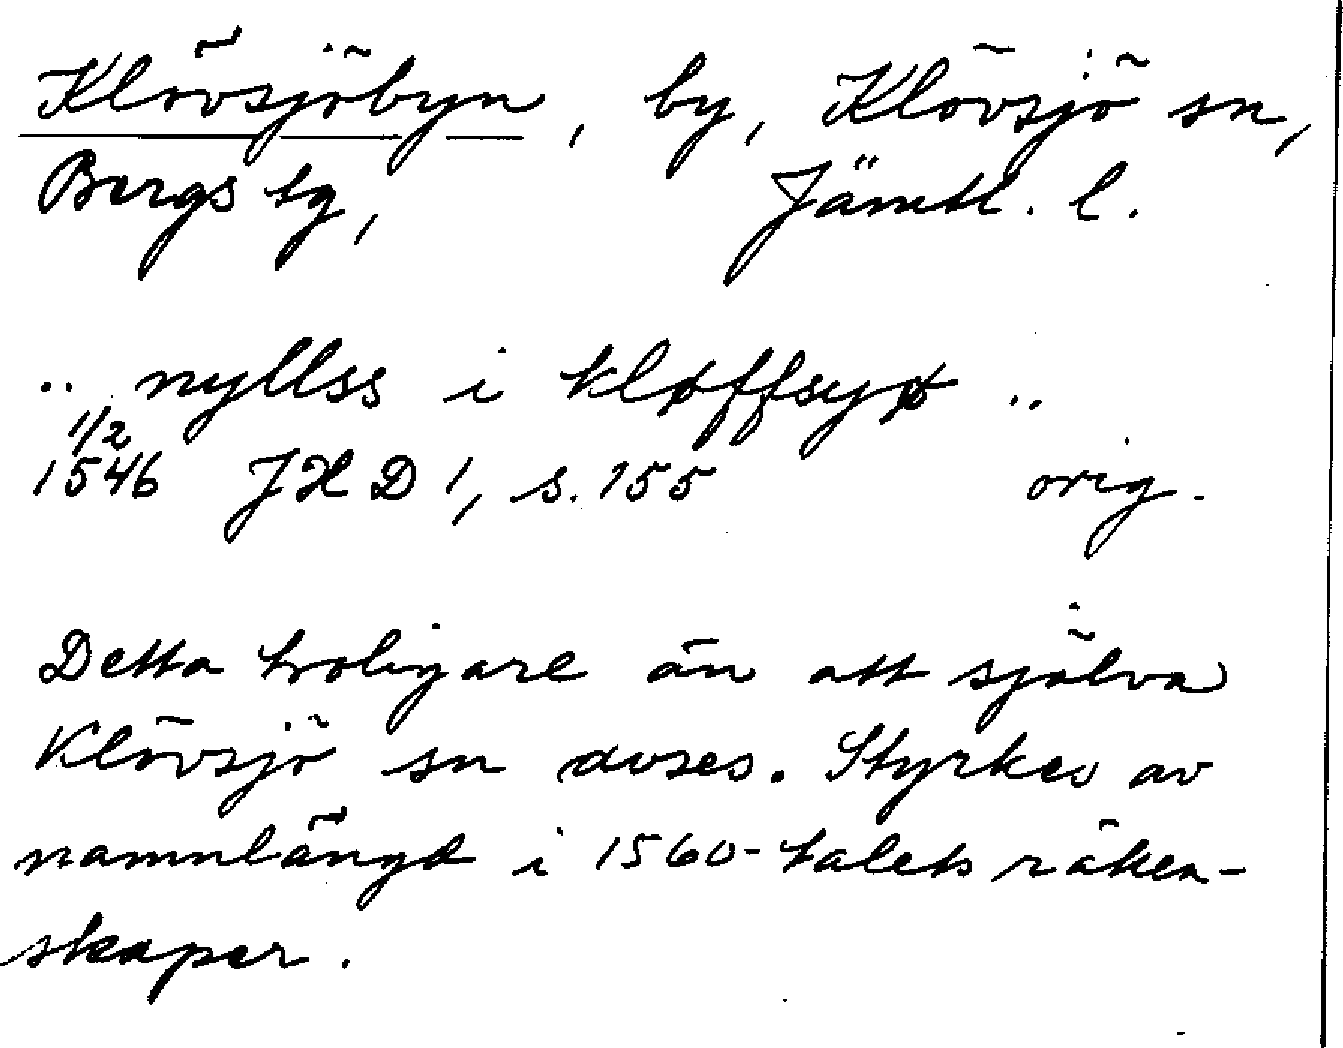 Klövsjöbyn, by, Klövsjö sn,
Bergs tg, Jämtl. l.
.. nyllss i kløffsyø ..
1/2
1546 JHD 1, s. 155 orig.
Detta troligare än att själva
Klövsjö sn avses. Styrkes av
namnlängd i 1560-talets räken-
skaper.